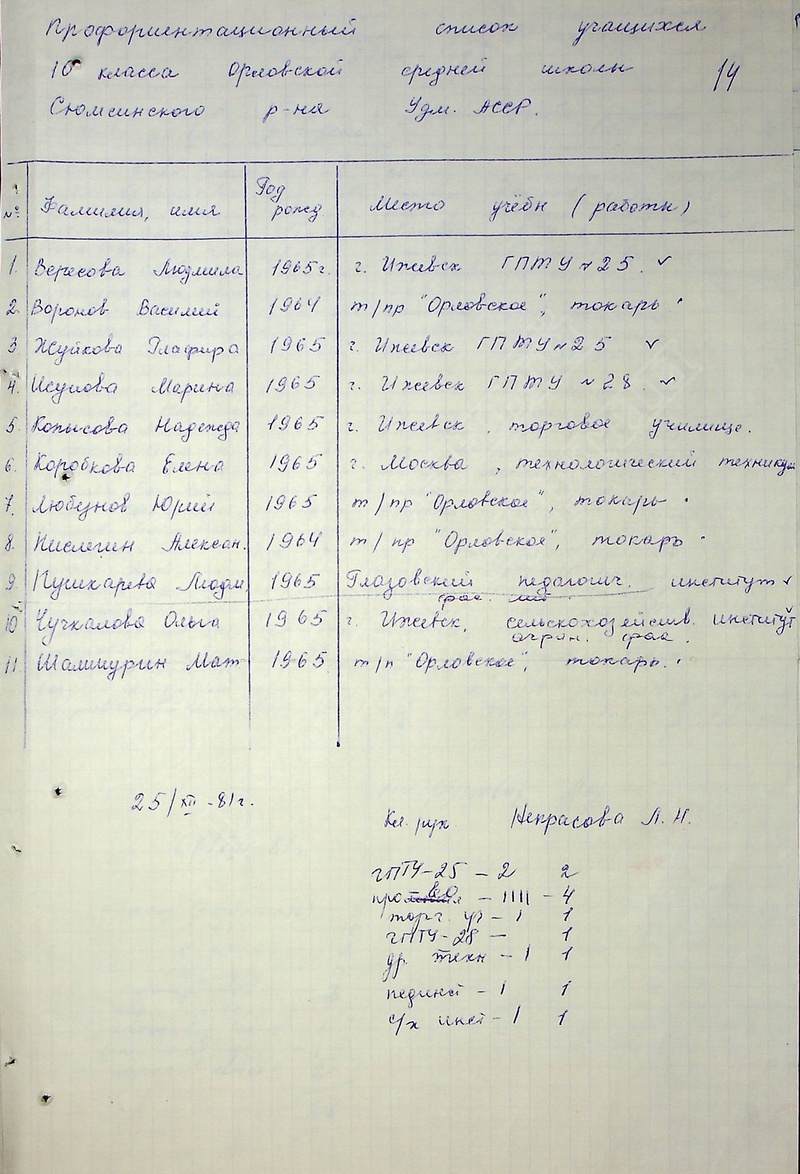 Профориентационный список учащихся
10 класса Орловской средней школы 14
Сюмсинского р-на Удм. АССР.
№ Фамилия, имя Год рожд Место учёбы (работы)
1. Вересова Людмила 1965г. г. Ижевск ГПТУ №25. ✓
2. Воронов Василий 1964 т/пр "Орловское", токарь
3 Жуйкова Глафира 1965 г. Ижевск ГПТУ №25 ✓
4. Исупова Марина 1965 г. Ижевск ГПТУ №28. ✓
5. Копысова Надежда 1965 г. Ижевск, торговое училище.
6. Коробкова Елена 1965 г. Москва, технологический техникум
7. Любезнов Юрий 1965 т/пр "Орловское", токарь
8. Кислегин Алексан. 1964 т/пр "Орловское", токарь
9 Пушкарева Людм. 1965 Глазовский педагогич. институт ✓
фак.
10 Чучкалова Ольга 1965 г. Ижевск, сельскохозяйств. институт
агрон. фак.
11 Шалишурин Мат 1965 т/п "Орловское", токарь.
25/XII-81г.
Кл. рук. Некрасова Л. Н.
ГПТУ-25 – 2 2
про во – IIII – 4
торг. уч – 1 1
ГПТУ-28 – 1
др. техн – 1 1
пединст – 1 1
с/х инст – 1 1